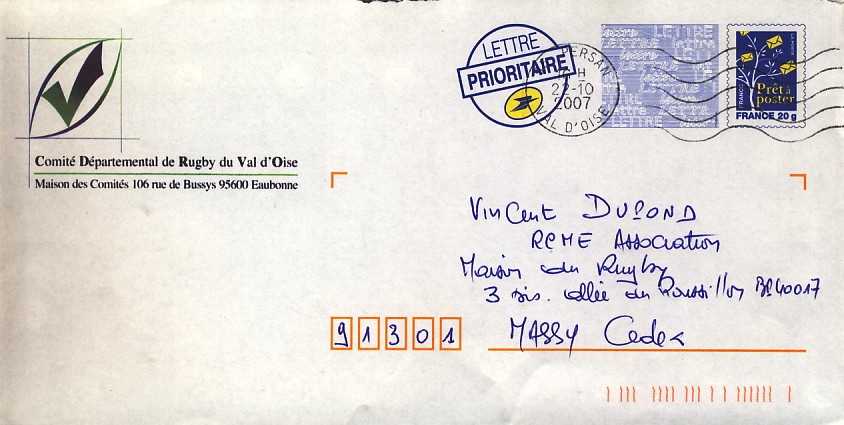 LETTRE
PRIORITAIRE
PERSAN
H
22-10
2007
VAL D'OISE
LETTRE
Prêt à
poster
FRANCE 20 g
Comité Départemental de Rugby du Val d'Oise
Maison des Comités 106 rue de Bussys 95600 Eaubonne
Vincent DUPOND
RCME Association
Maison du Rugby
3 bis. allée du Roussillon BP40017
91301 MASSY Cedex